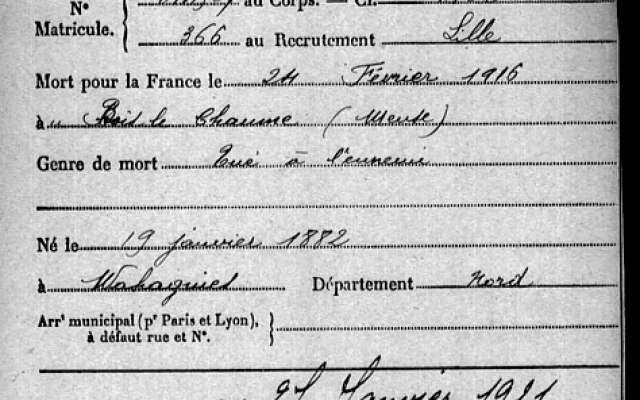 N° au Corps. — Cl.
Matricule. 366 au Recrutement Lille
Mort pour la France le 24 Février 1916
à Bois le Chaume (Meuse)
Genre de mort Tué à l'ennemi
Né le 19 janvier 1882
à Wahagnies Département Nord
Arrt municipal (pr Paris et Lyon),
à défaut rue et N°.
Janvier 1921